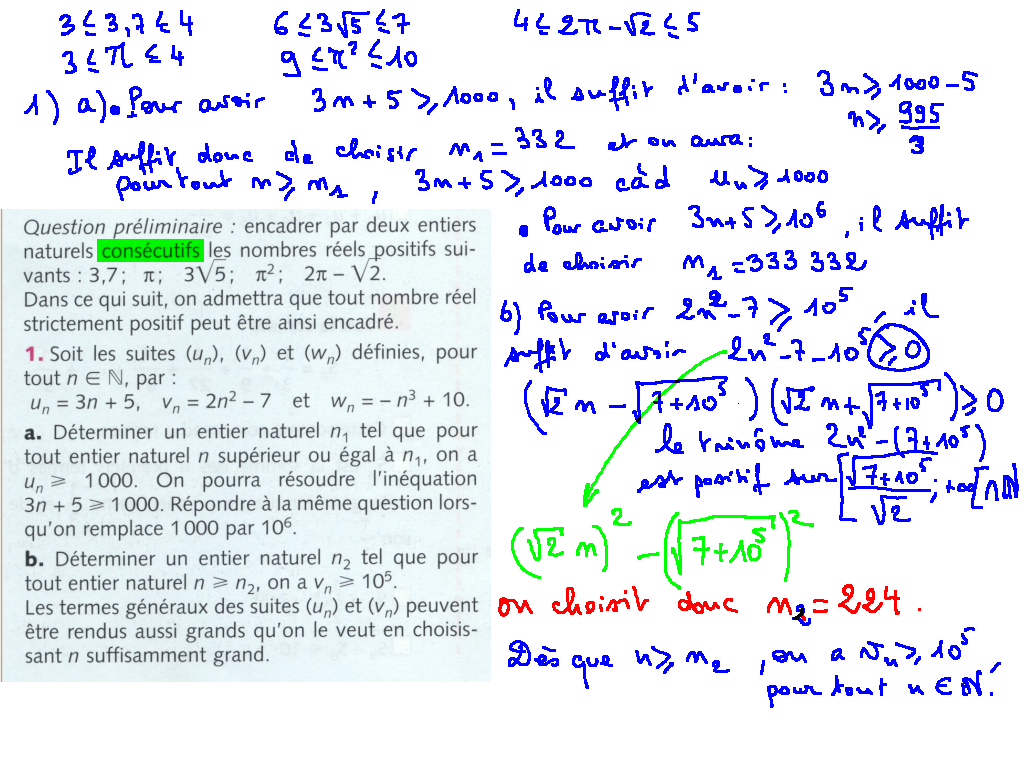 3 ≤ 3,7 ≤ 4 6 ≤ 3√5 ≤ 7 4 ≤ 2π - √2 ≤ 5
3 ≤ π ≤ 4 9 ≤ π² ≤ 10
1) a) • Pour avoir 3n + 5 ≥ 1000, il suffit d'avoir : 3n ≥ 1000 - 5
n ≥ 995/3
Il suffit donc de choisir n₁ = 332 et on aura :
pour tout n ≥ n₁, 3n + 5 ≥ 1000 càd uₙ ≥ 1000
Question préliminaire : encadrer par deux entiers
naturels consécutifs les nombres réels positifs sui-
vants : 3,7 ; π ; 3√5 ; π² ; 2π – √2.
Dans ce qui suit, on admettra que tout nombre réel
strictement positif peut être ainsi encadré.
1. Soit les suites (uₙ), (vₙ) et (wₙ) définies, pour
tout n ∈ ℕ, par :
uₙ = 3n + 5, vₙ = 2n² – 7 et wₙ = – n³ + 10.
a. Déterminer un entier naturel n₁ tel que pour
tout entier naturel n supérieur ou égal à n₁, on a
uₙ ⩾ 1 000. On pourra résoudre l'inéquation
3n + 5 ⩾ 1 000. Répondre à la même question lors-
qu'on remplace 1 000 par 10⁶.
b. Déterminer un entier naturel n₂ tel que pour
tout entier naturel n ⩾ n₂, on a vₙ ⩾ 10⁵.
Les termes généraux des suites (uₙ) et (vₙ) peuvent
être rendus aussi grands qu'on le veut en choisis-
sant n suffisamment grand.
• Pour avoir 3n+5 ≥ 10⁶, il suffit
de choisir n₁ = 333 332
b) Pour avoir 2n² - 7 ≥ 10⁵, il
suffit d'avoir 2n² - 7 - 10⁵ ≥ 0
(√2 n - √(7+10⁵)) (√2 n + √(7+10⁵)) ≥ 0
le trinôme 2n² - (7+10⁵)
est positif sur [√(7+10⁵)/√2 ; +∞[ ∩ ℕ
(√2 n)² - (√(7+10⁵))²
on choisit donc n₂ = 224.
Dès que n ≥ n₂, on a vₙ ≥ 10⁵,
pour tout n ∈ ℕ.